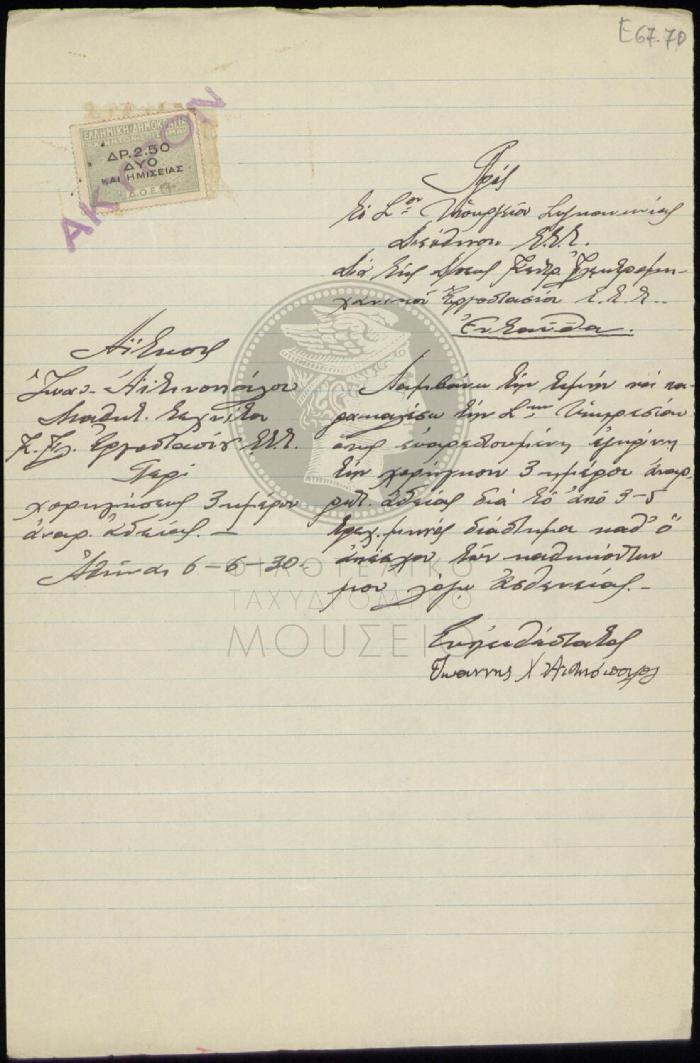 Ε67.70
ΕΛΛΗΝΙΚΗ ΔΗΜΟΚΡΑΤΙΑ
ΔΡ. 2.50
ΔΥΟ
ΚΑΙ ΗΜΙΣΕΙΑΣ
ΑΚΥΡΟΝ
Πρός
τὸ Σ.ον Ὑπουργεῖον Συγκοινωνίας
Διεύθυνσιν Τ.Τ.Τ.
Διὰ τῆς Δ)σεως Κεντρ. Ἠλεκτρομη-
χανικοῦ Ἐργοστασίου Τ.Τ.Τ.
Ἐνταῦθα.
Αἴτησις
Μαθητ. τεχνίτου
Κ. Ἠλ. Ἐργοστασίου Τ.Τ.Τ.
Περὶ
χορηγήσεως 3ημέρου
ἀναρ. ἀδείας.—
Ἀθῆναι 6-6-30.
Λαμβάνω τὴν τιμὴν νὰ πα-
ρακαλέσω τὴν Σ.την Ὑπηρεσίαν
ὅπως εὐαρεστουμένη ἐγκρίνῃ
τὴν χορήγησιν 3ημέρου ἀναρ-
ρωτ. ἀδείας διὰ τὸ ἀπὸ 3-5
τρεχ. μηνὸς διάστημα καθ' ὃ
ἀπέσχον τῶν καθηκόντων
μου λόγῳ ἀσθενείας.—
Εὐπειθέστατος
Ἰωάννης Χ
ΦΙΛΟΤΕΛΙΚΟ
ΤΑΧΥΔΡΟΜΙΚΟ
ΜΟΥΣΕΙΟ